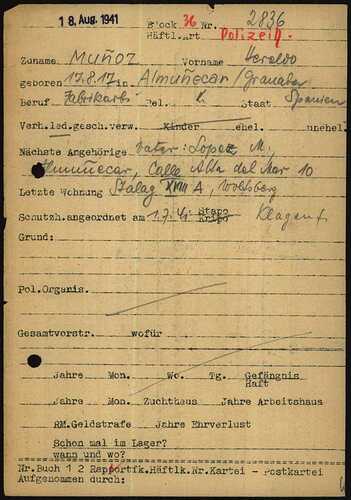 18. Aug. 1941
Block 36 Nr. 2836
Häftl.Art Polizeih.
Zuname Muñoz Vorname Heraldo
geboren 17.8.17 in Almuñecar/Granada
Beruf Fabrikarb. Rel. k. Staat Spanien
Verh.led.gesch.verw. Kinder ehel. unehel.
Nächste Angehörige Vater: Lopez M.
Almuñecar, Calle Alta del Mar 10
Letzte Wohnung Stalag XVIII A, Wolfsberg
Schutzh.angeordnet am 1.7.41 Stapo Kripo Klagenf.
Grund:
Pol.Organis.
Gesamtvorstr. wofür
Jahre Mon. Wo. Tg. Gefängnis Haft
Jahre Mon. Zuchthaus Jahre Arbeitshaus
RM.Geldstrafe Jahre Ehrverlust
Schon mal im Lager?
wann und wo?
Nr.Buch 1 2 Rapportfk.Häftlk.Nr.Kartei - Postkartei
Aufgenommen durch: